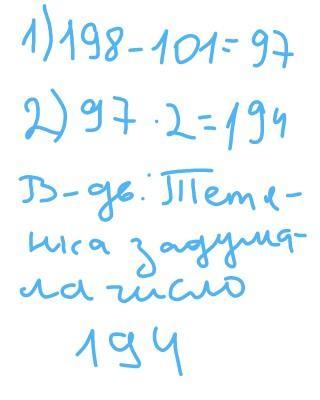 1) 198 - 101 = 97
2) 97 · 2 = 194
В-дь: Тетя-
нка задума-
ла число
194